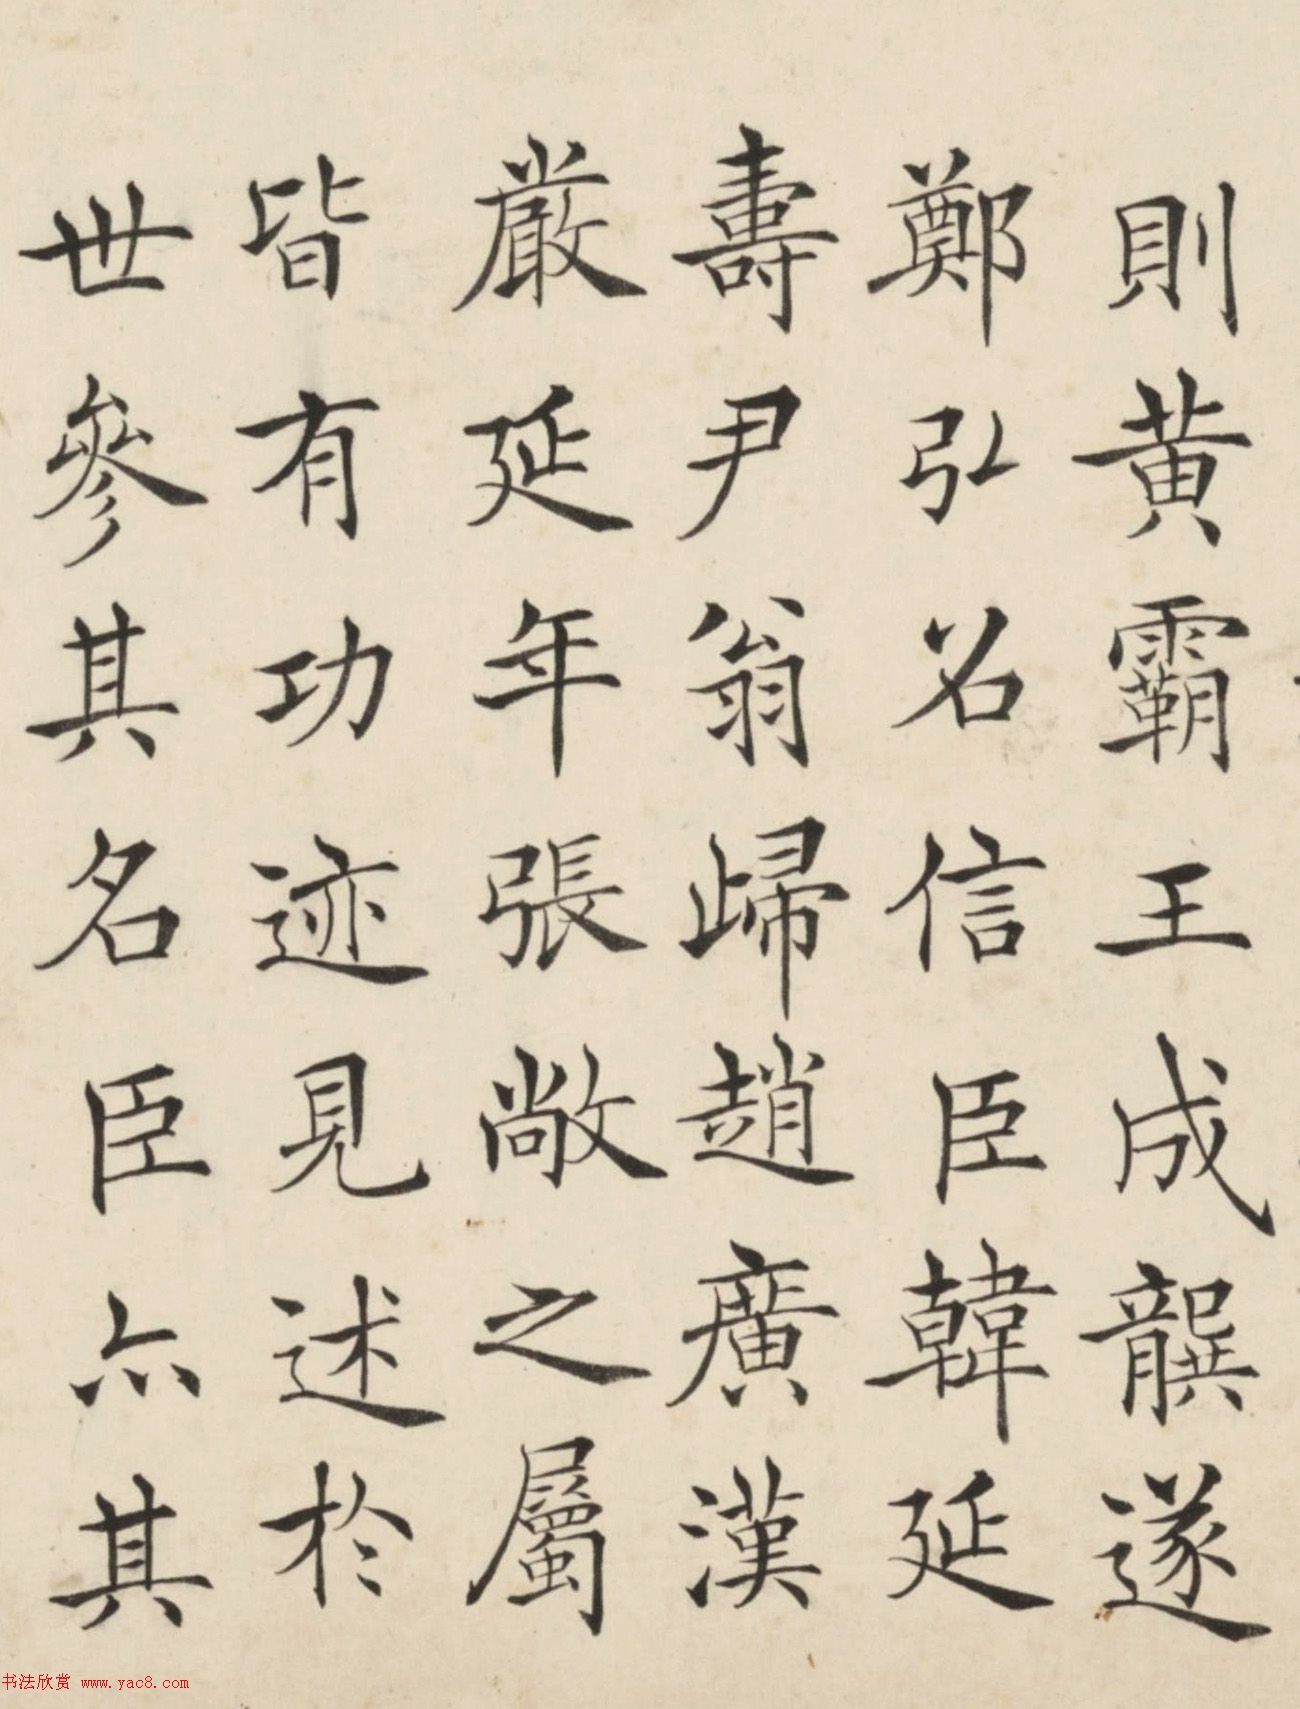 則黃霸王成龔遂
鄭弘召信臣韓延
壽尹翁歸趙廣漢
嚴延年張敞之屬
皆有功迹見述於
世參其名臣亦其
书法欣赏 www.yac8.com